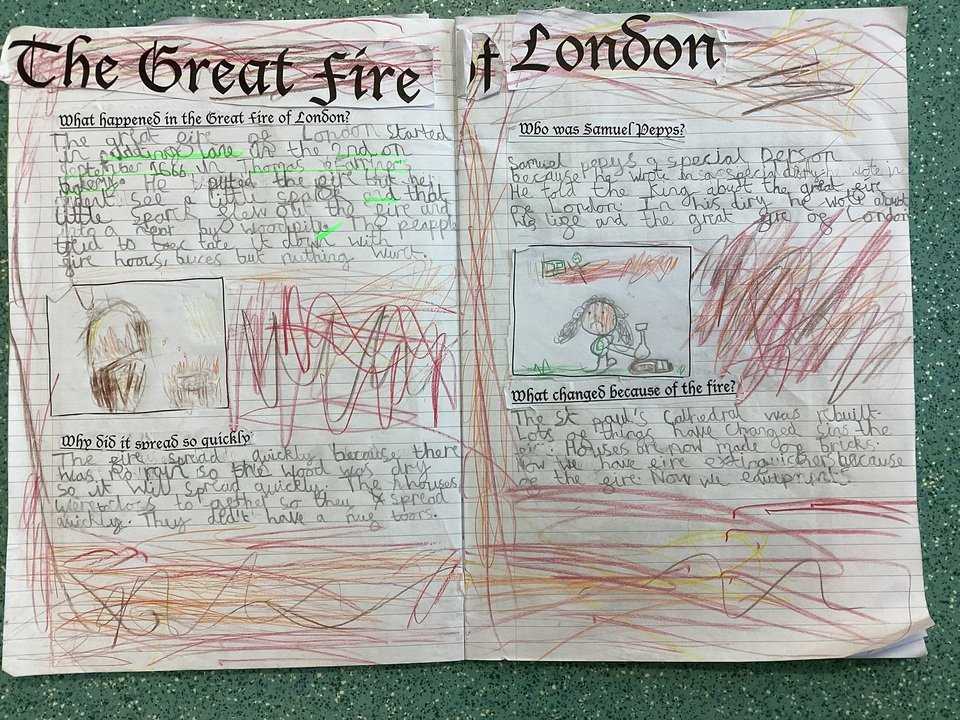 The Great Fire of London
What happened in the Great Fire of London?
The great eire oe London started
in pudding lane on the 2nd on
september 1666 in thomas
bakery. He puted the eire but he
dident see a little spark and that
little spark elew out the eire and
into a near by woodpile. The peapple
tried to take it down with
eire hoocs, buces but nuthing wurct.
Why did it spread so quickly
The eire spread quickly because there
was no rain so the wood was dry
so it will spread quickly. The houses
were clos to gether so they spread
quickly. They didt have a nug
Who was Samuel Pepys?
Samuel pepys a special person
because he wrote in a special diry he wote in
He told the King abut the great eire
oe London. In his diry he wote about
his lige and the great eire oe London
What changed because of the fire?
The St paul's Cathedral was rbuilt.
Lots oe things have changed sins the
eir. Houses are now made oe bricks.
Now we have eire extinguichers because
oe the eire. Now we